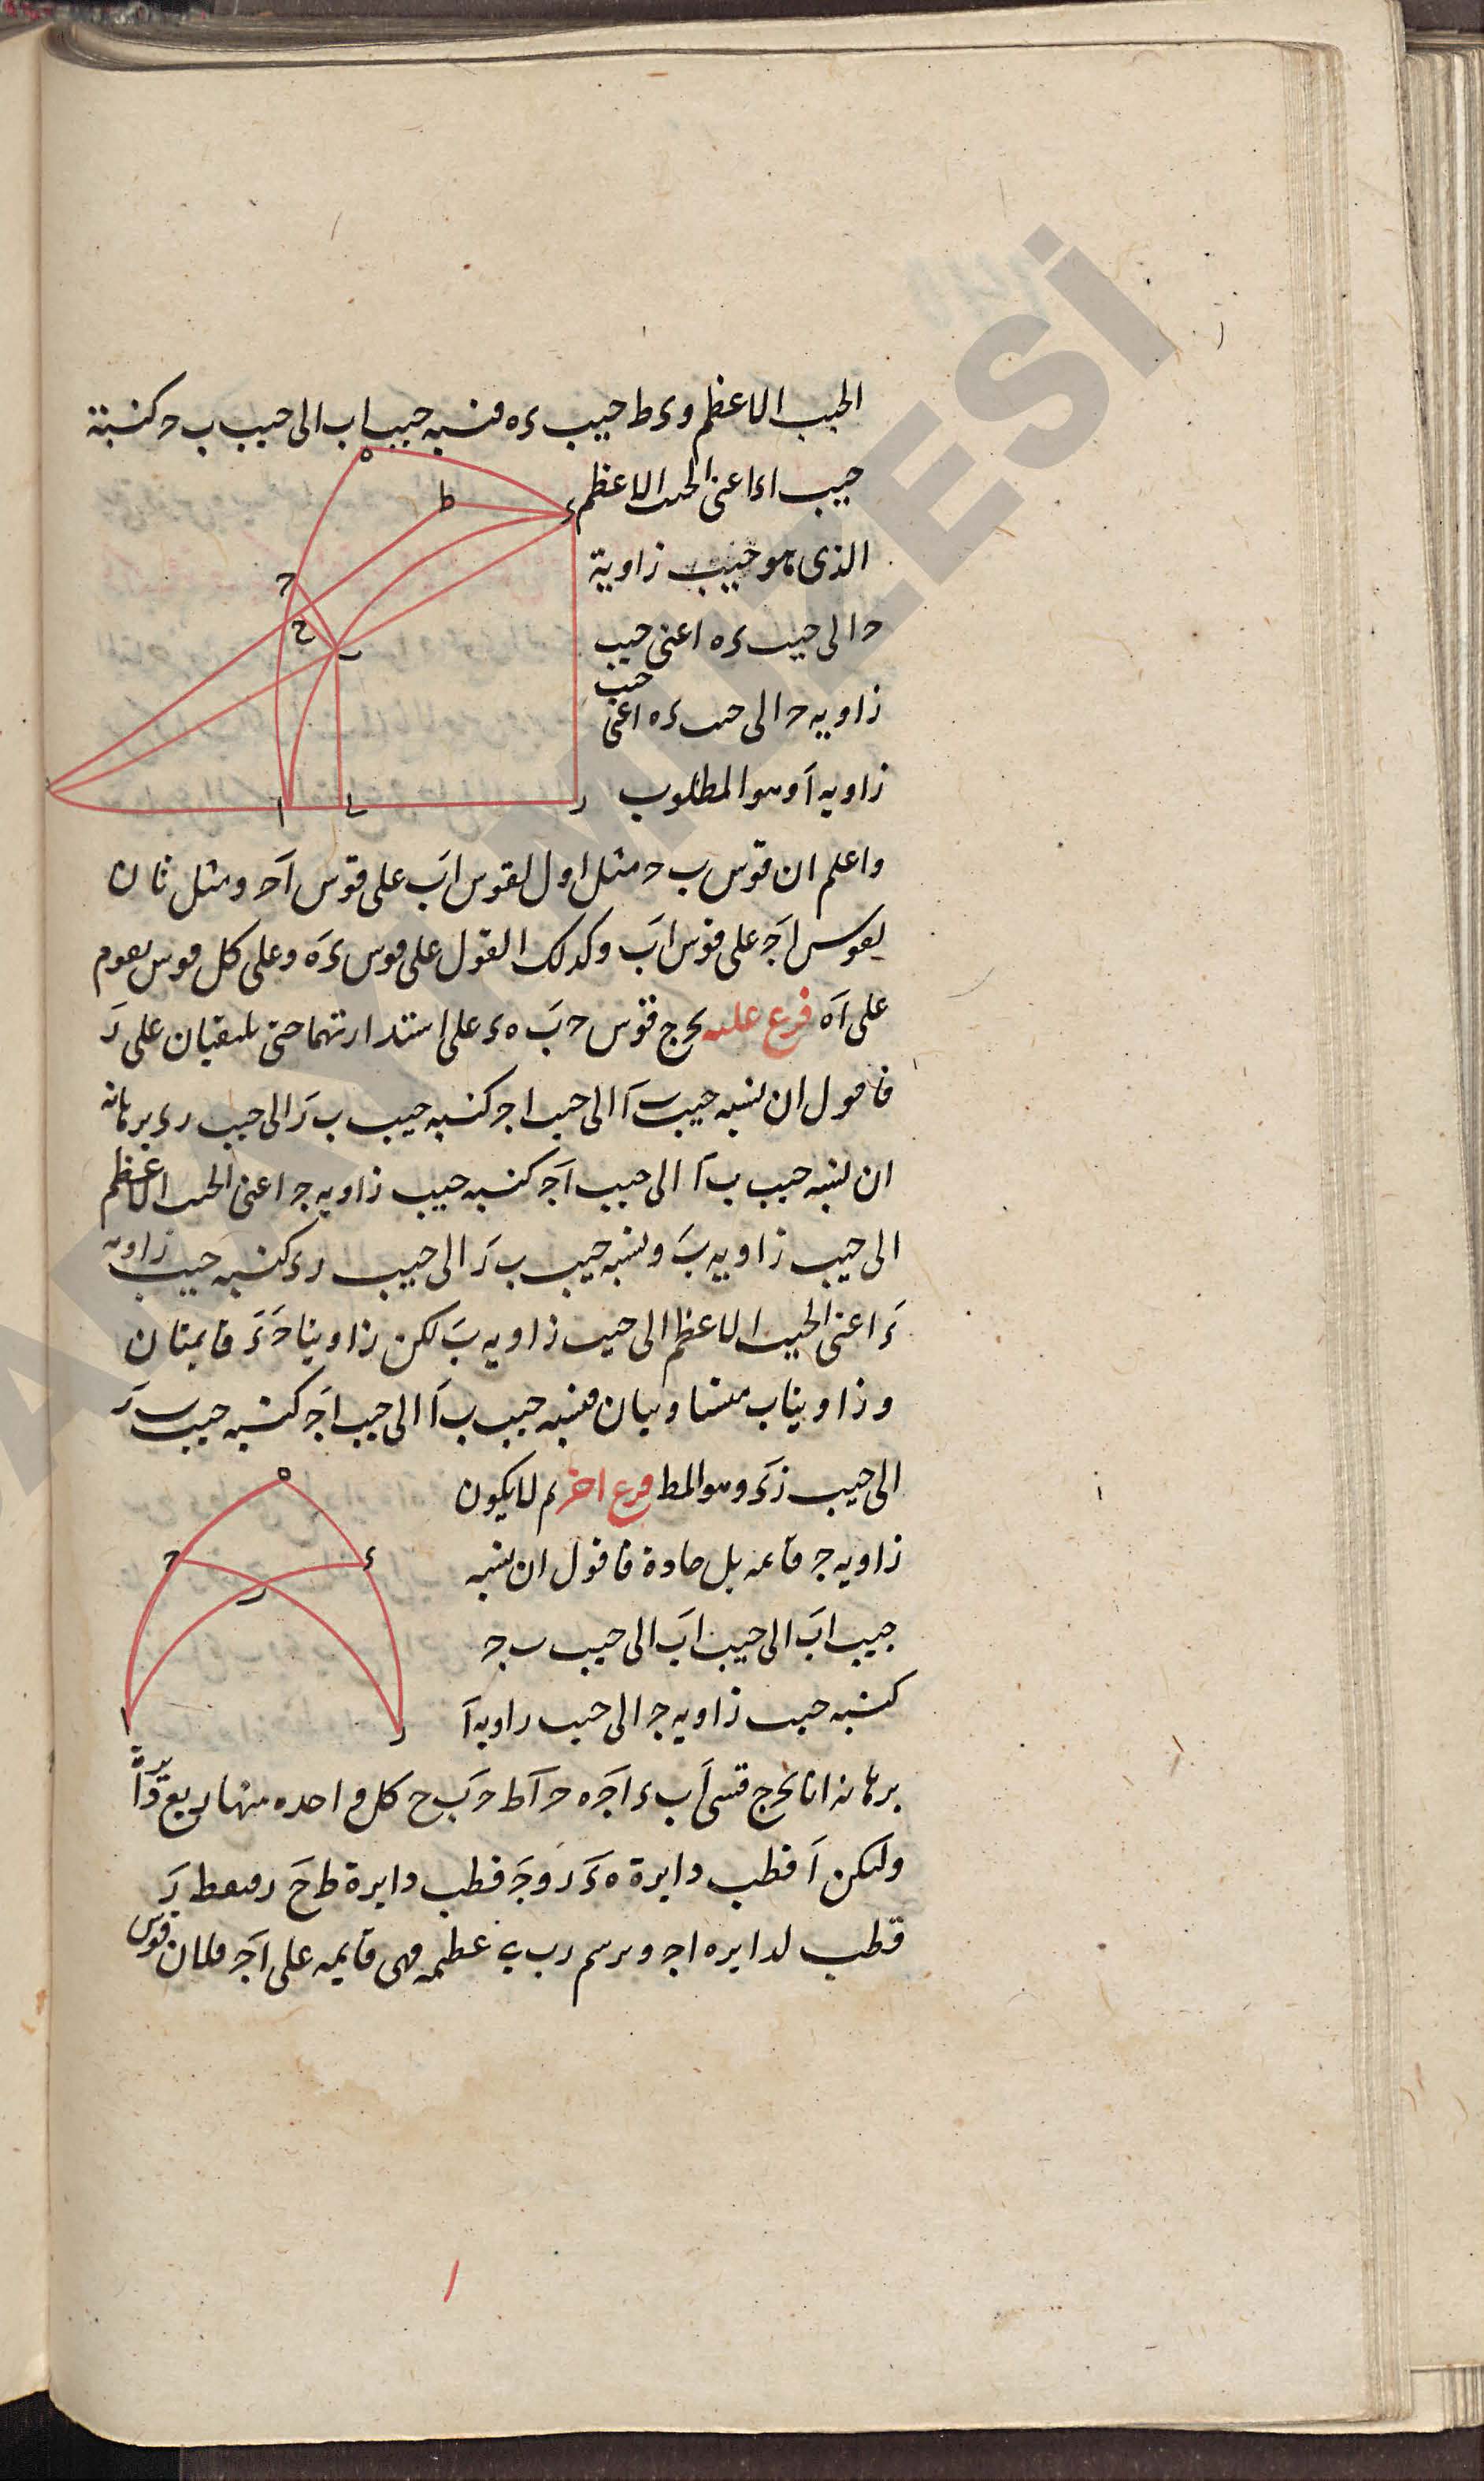 الجيب الاعظم وء ط جيب ء ه فنسبه جيب اب الى جيب ب ح كنسبة
جيب اء اعنى الجيب الاعظم
الذى هو جيب زاوية
ح الى جيب ء ه اعنى جيب
جيب
زاويه ح الى جيب ء ه اعنى
زاويه آ وهو المطلوب
واعلم ان قوس ب ح مثل اول لقوس اب على قوس آح ومثل ثان
لقوس اج على قوس اب وكذلك القول على قوس ء ه وعلى كل قوس يقوم
على آه فرع عليه نخرج قوس ح ب ه ء على استدارتهما حتى يلتقيان على ر
فاقول ان نسبه جيب ب آ الى جيب اج كنسبه جيب ب ر الى جيب ر ء برهانه
ان نسبه جيب ب آ الى جيب آج كنسبه جيب زاويه ج اعنى الجيب الاعظم
الى جيب زاويه ب ونسبه جيب ب ر الى جيب ر ء كنسبه جيب زاويه
ء اعنى الجيب الاعظم الى جيب زاويه ب لكن زاويتا ح ء قايمتان
وزاويتا ب متساويتان فنسبه جيب ب آ الى جيب اج كنسبه جيب ب ر
الى جيب ز ء وهو المط فرع اخر ثم لا يكون
زاويه ج قائمه بل حادة فاقول ان نسبه
جيب اب الى جيب اب الى جيب ب ج
كنسبه جيب زاويه ج الى جيب زاويه آ
برهانه انا نخرج قسى اب ء اج ه ح آ ط ح ب ح كل واحده منها ربع
وليكن آ قطب دايرة ه ء ر وج قطب دايرة ط ح ر فنقطه ر
قطب لدايره اج ونرسم ر ب ى عظيمه فهى قايمه على اج فلان قوس
ه
ط
ء
ح
ح
ب
ا
ل
ر
ه
ح
ء
ب
ا
ر